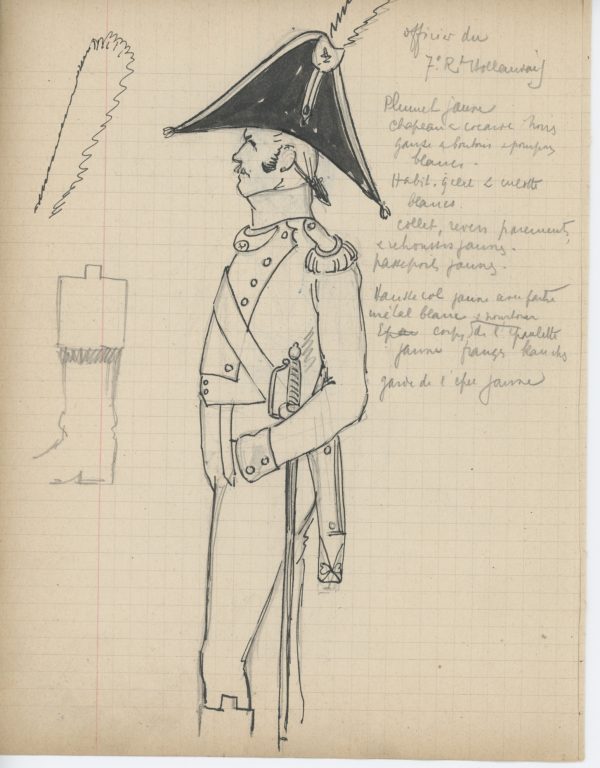 officier du
7e Rt Hollandais
Plumet jaune
chapeau & cocarde noirs
ganse & boutons & pompon
blancs.
Habit, gilet & culotte
blancs.
collet, revers parements,
& rehoussis jaunes.
passepoils jaunes.
Hausse col jaune avec
métal blanc &
corps de l'épaulette
jaune franges blanches
garde de l'épée jaune